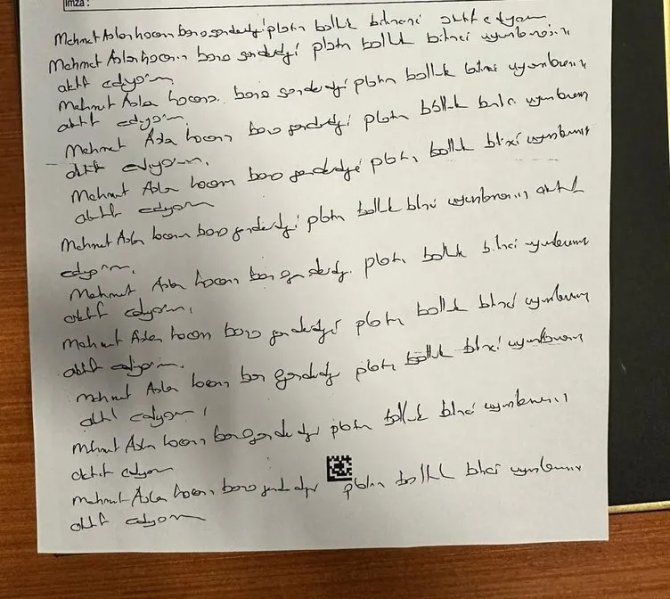 İmza :
Mehmet Aslan hocam bana gonderdiği platin bolluk bilincini aktif ediyorum
Mehmet Aslan hocam bana gonderdiği platin bolluk bilinci uyumlamasını
aktif ediyorum
Mehmet Aslan hocam bana gonderdiği platin bolluk bilinci uyumlamasını
aktif ediyorum.
Mehmet Aslan hocam bana gonderdiği platin bolluk bilinci uyumlamasını
aktif ediyorum.
Mehmet Aslan hocam bana gonderdiği platin bolluk bilinci uyumlamasını
aktif ediyorum
Mehmet Aslan hocam bana gonderdiği platin bolluk bilinci uyumlamasını aktif
ediyorum.
Mehmet Aslan hocam bana gonderdiği platin bolluk bilinci uyumlamasını
aktif ediyorum.
Mehmet Aslan hocam bana gonderdiği platin bolluk bilinci uyumlamasını
aktif ediyorum.
Mehmet Aslan hocam bana gonderdiği platin bolluk bilinci uyumlamasını
aktif ediyorum
Mehmet Aslan hocam bana gonderdiği platin bolluk bilinci uyumlamasını
aktif ediyorum
Mehmet Aslan hocam bana gonderdiği platin bolluk bilinci uyumlamasını
aktif ediyorum